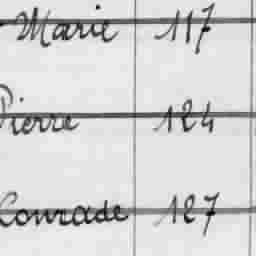 Marie 117
Pierre 124
Conrade 127